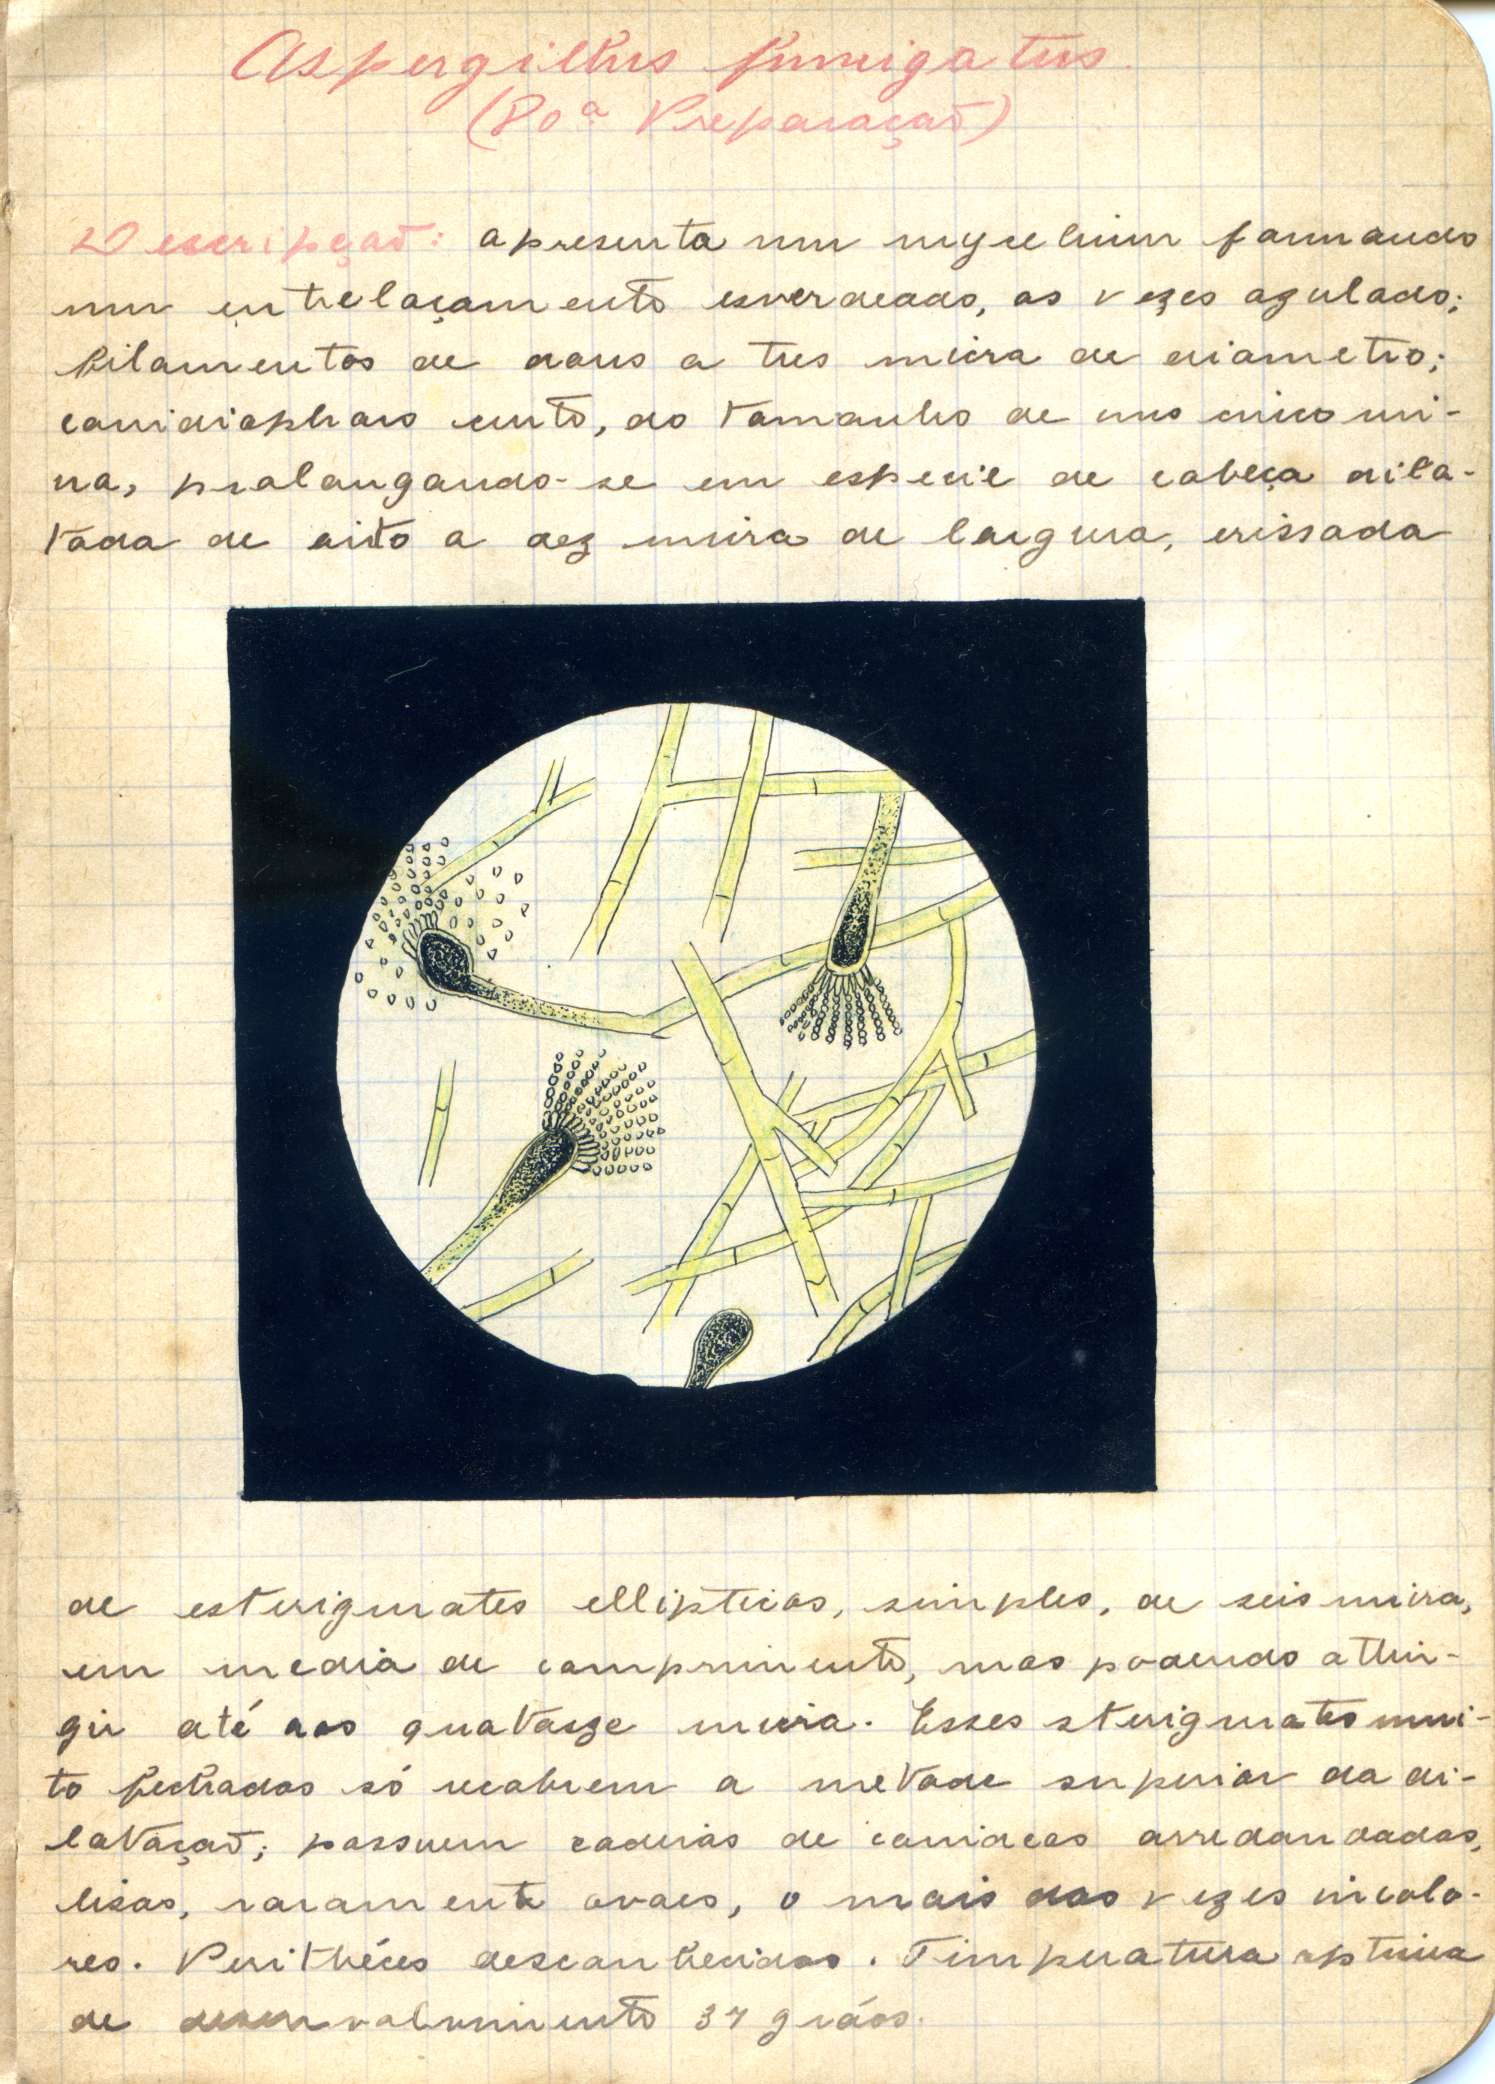 Aspergillus fumigatus
(80ª Preparaçaõ)
Descripçaõ: apresenta um mycelium formando
um entrelaçamento esverdeado, as vezes azulado;
filamentos de dous a tres micra de diametro;
conidiophoro curto, do tamanho de uns cinco mi-
cra, prolongando-se em especie de cabeça dila-
tada de oito a dez micra de largura, erissada
de esterigmates ellipticos, simples, de seis micra,
em media de comprimento, mas podendo attin-
gir até aos quatorze micra. Esses sterigmates mui-
to fechados só recobrem a metade superior da di-
lataçaõ; possuem cadeias de conideos arredondados,
lisos, raramente ovaes, o mais das vezes incolo-
res. Perithéces desconhecidos. Temperatura optima
de desenvolvimento 37 gráos.